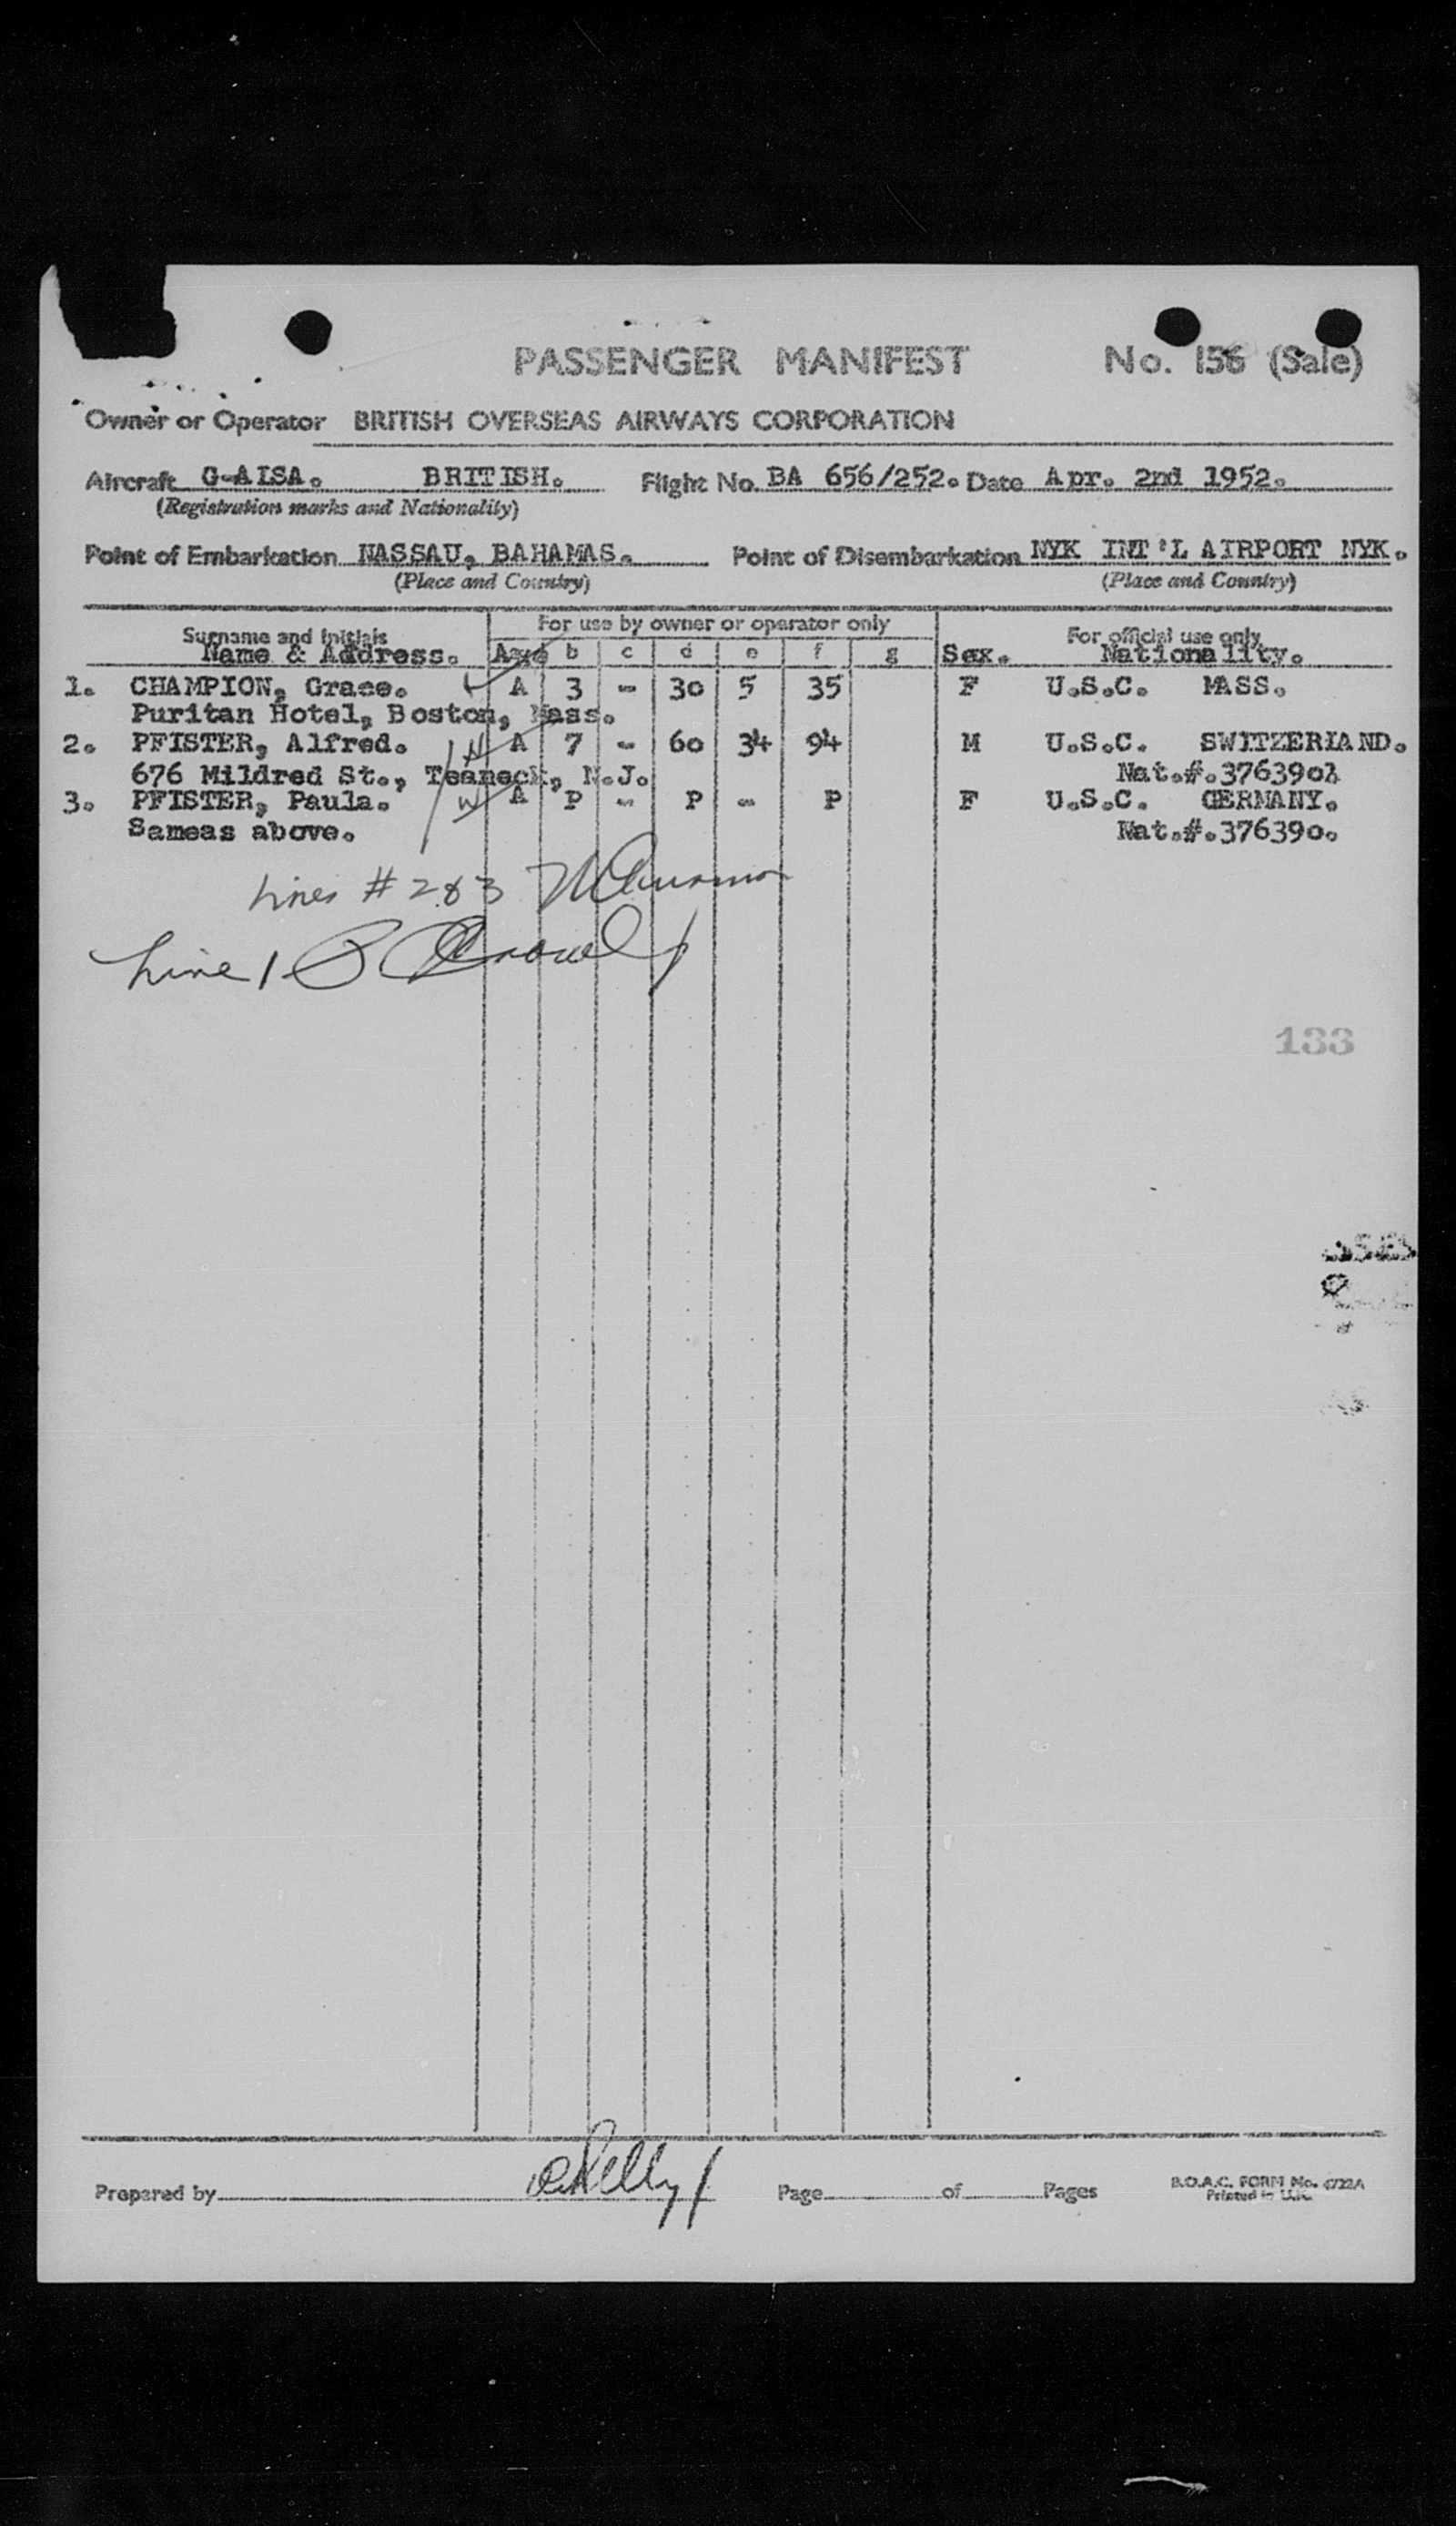 PASSENGER MANIFEST No. 156 (Sale)
Owner or Operator BRITISH OVERSEAS AIRWAYS CORPORATION
Aircraft G-AISA. BRITISH. Flight No. BA 656/252. Date Apr. 2nd 1952.
(Registration marks and Nationality)
Point of Embarkation NASSAU, BAHAMAS. Point of Disembarkation NYK INT'L AIRPORT NYK.
(Place and Country) (Place and Country)
For use by owner or operator only
Surname and Initials For official use only
Name & Address. Age b c d e f g Sex. Nationality.
1. CHAMPION, Grace. A 3 - 30 5 35 F U.S.C. MASS.
Puritan Hotel, Boston, Mass.
2. PFISTER, Alfred. H A 7 - 60 34 94 M U.S.C. SWITZERLAND.
676 Mildred St., Teaneck, N.J. Nat.#.3763901
3. PFISTER, Paula. W A P - P - P F U.S.C. GERMANY.
Sameas above. Nat.#.376390.
Lines # 2&3
Line 1
133
Prepared by Page of Pages
B.O.A.C. FORM No.
Printed in U.K.